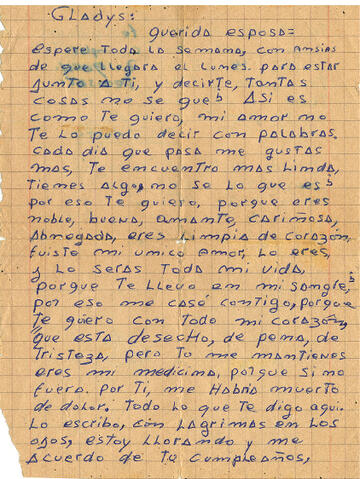 GLadys:
querida esposa=
espere Toda La semana, con ansias
de que LLegara el Lunes. para estar
Junto a Ti, y decirte, Tantas
cosas no se que Asi es
como Te quiero, mi amor no
Te Lo puedo decir con palabras.
cada dia que pasa me gustas
mas, Te encuentro mas Linda,
Tienes algo, no se Lo que es
por eso Te quiero, porque eres
noble, buena, amante, cariñosa,
Abnegada, eres Limpia de corazón,
fuiste mi unico amor, Lo eres,
y Lo seras Toda mi vida,
porque Te LLevo en mi sangre,
por eso me casé contigo, porque
Te quiero con Todo mi corazón,
que esta desecho, de pena, de
Tristeza, pero Tu me mantienes
eres mi medicina, porque si no
fuera. por Ti, me Habria muerto
de dolor. Todo Lo que Te digo aqui.
Lo escribo, con Lagrimas en Los
ojos, estoy LLorando y me
acuerdo de Tu cumpleaños,